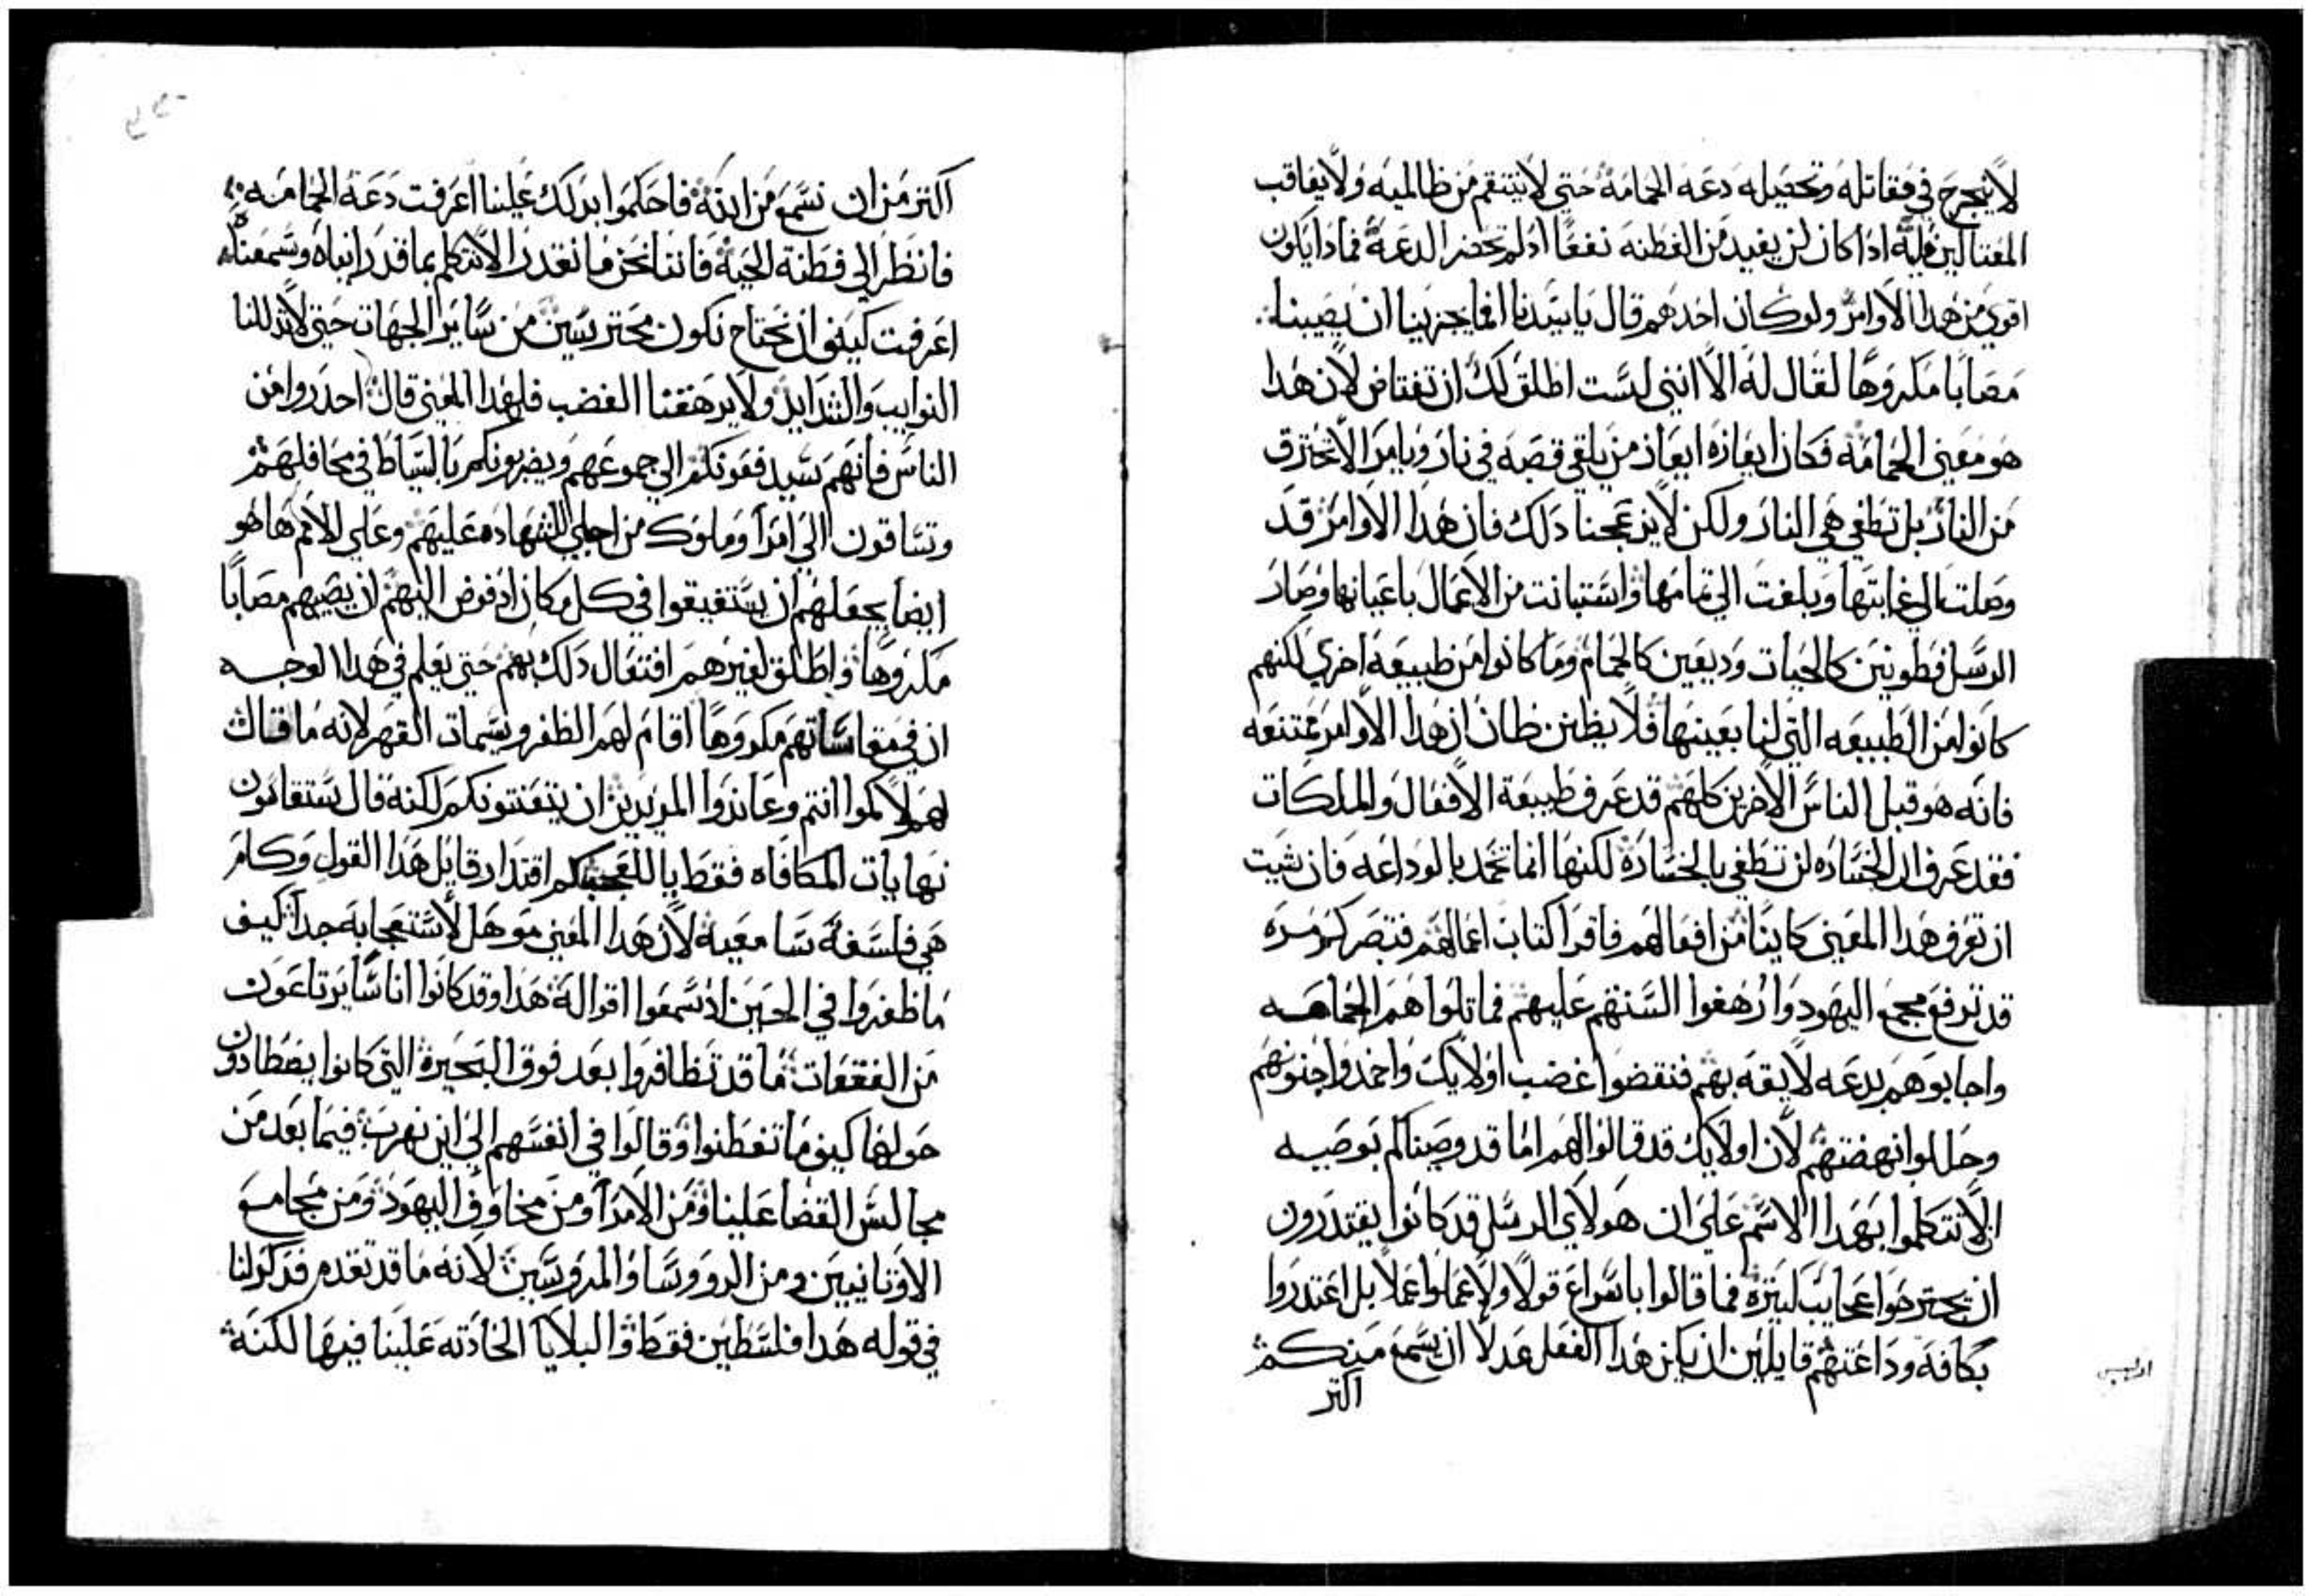 لا ينجرح في مقاتله وتحصيله دعة الحمامة حتي لا ينتقم من ظالميه ولا يعاقب
المغتالين فيه اذا كان لن يفيد من الفطنه نفعًا اذ لم تحضر الدعة فماذا يكون
اقوي من هذا الاوامر ولو كان احدهم قال يا سيدنا افما يجزينا ان يصيبنا
مصابًا مكروهًا لقال له الا انني لست اطلق لك ان تغتاض لان هذا
هو معني الحمامه فكان ايعازه ايعاز من يلقي قصبه في نار ويامر الا تحترق
من النار بل تطفي هي النار ولكن لا يزعجنا ذلك فان هذا الاوامر قد
وصلت الي غايتها وبلغت الي تمامها واستبانت من الاعمال باعيانها وصار
الرسل فطونين كالحيات وديعين كالحمام وما كانوا من طبيعه اخري لكنهم
كانوا من الطبيعه التي لنا بعينها فلا يظنن ظان ان هذا الاوامر ممتنعه
فانه هو قبل الناس الاخرين كلهم قد عرف طبيعة الافعال والملكات
فقد عرف ان الخساره لن تطفي بالخسارة لكنها انما تخمد بالوداعه فان شيت
ان تعرف هذا المعني كاينا من افعالهم فاقرا كتاب اعمالهم فتبصر كم مره
قد توقع مجمع اليهود وارهفوا السنتهم عليهم فماثلوا هم الحمامه
واجابوهم بدعه لايقه بهم فنقضوا غضب اولايك واخمدوا جنونهم
وحللوا نهضتهم لان اولايك قد قالوا لهم اما قد وصيناكم بوصيه
الا تتكلموا بهذا الاسم علي ان هولاي الرسل قد كانوا يقتدرون
ان يجترحوا عجايب كثيره فما قالوا باسراع قولا ولا عملوا عملا بل اعتذروا
بكافه وداعتهم قايلين ان يكن هذا الفعل عدلا ان نسمع منكم
اكثر
اكثر من ان نسمع من الله فاحكموا بذلك علينا اعرفت دعة الحمامه
فانظر الي فطنة الحية فاننا نحن ما نقدر الا نتكلم بما قد رايناه وسمعناه
اعرفت كيف ان نحتاج نكون محترسين من ساير الجهات حتي لا تذللنا
النوايب والشدايد ولا يرهقنا الغضب فلهذا المعني قال احذروا من
الناس فانهم سيدفعونكم الي جموعهم ويضربونكم بالسياط في محافلهم
وتساقون الي امرا وملوك من اجلي للشهاده عليهم وعلي الامم ها هو
ايضا يجعلهم ان يستفيقوا في كل مكان اذ فوض اليهم ان يصيبهم مصابًا
مكروهًا واطلق لغيرهم افتعال ذلك بهم حتي يعلم في هذا الوجه
ان في مقاساتهم مكروهًا اقام لهم الظفر وسمات القهر لانه ما قال
لهم لاكموا انتم وعاندوا المريدين ان يتعنتونكم لكنه قال ستقاسون
نهايات المكافاه فقط يا للعجب كم اقتدار قايل هذا القول وكم
هي فلسفة سامعيه لان هذا المعني موهل لاستعجابه جدا كيف
ما ظفروا في الحين اذ سمعوا اقواله هذا وقد كانوا اناسًا يرتاعون
من الفقعات ما قد تظافروا بعد فوق البحيرة التي كانوا يصطادون
حولها كيف ما تفطنوا وقالوا في انفسهم الي اين نهرب فيما بعد من
مجالس القضا علينا ومن الامرا ومن مخاوف اليهود ومن مجامع
الاوثانيين ومن الروسا والمروسين لانه ما قد تقدم فذكر لنا
في قوله هذا فلسطين فقط والبلايا الحادثه علينا فيها لكنه